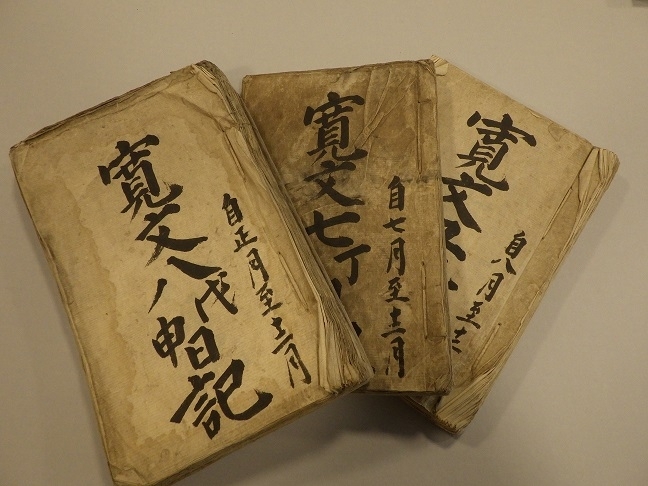 自八月至十二
寛文
自七月至十二月
寛文七丁
自正月至十二月
寛文八戊申日記